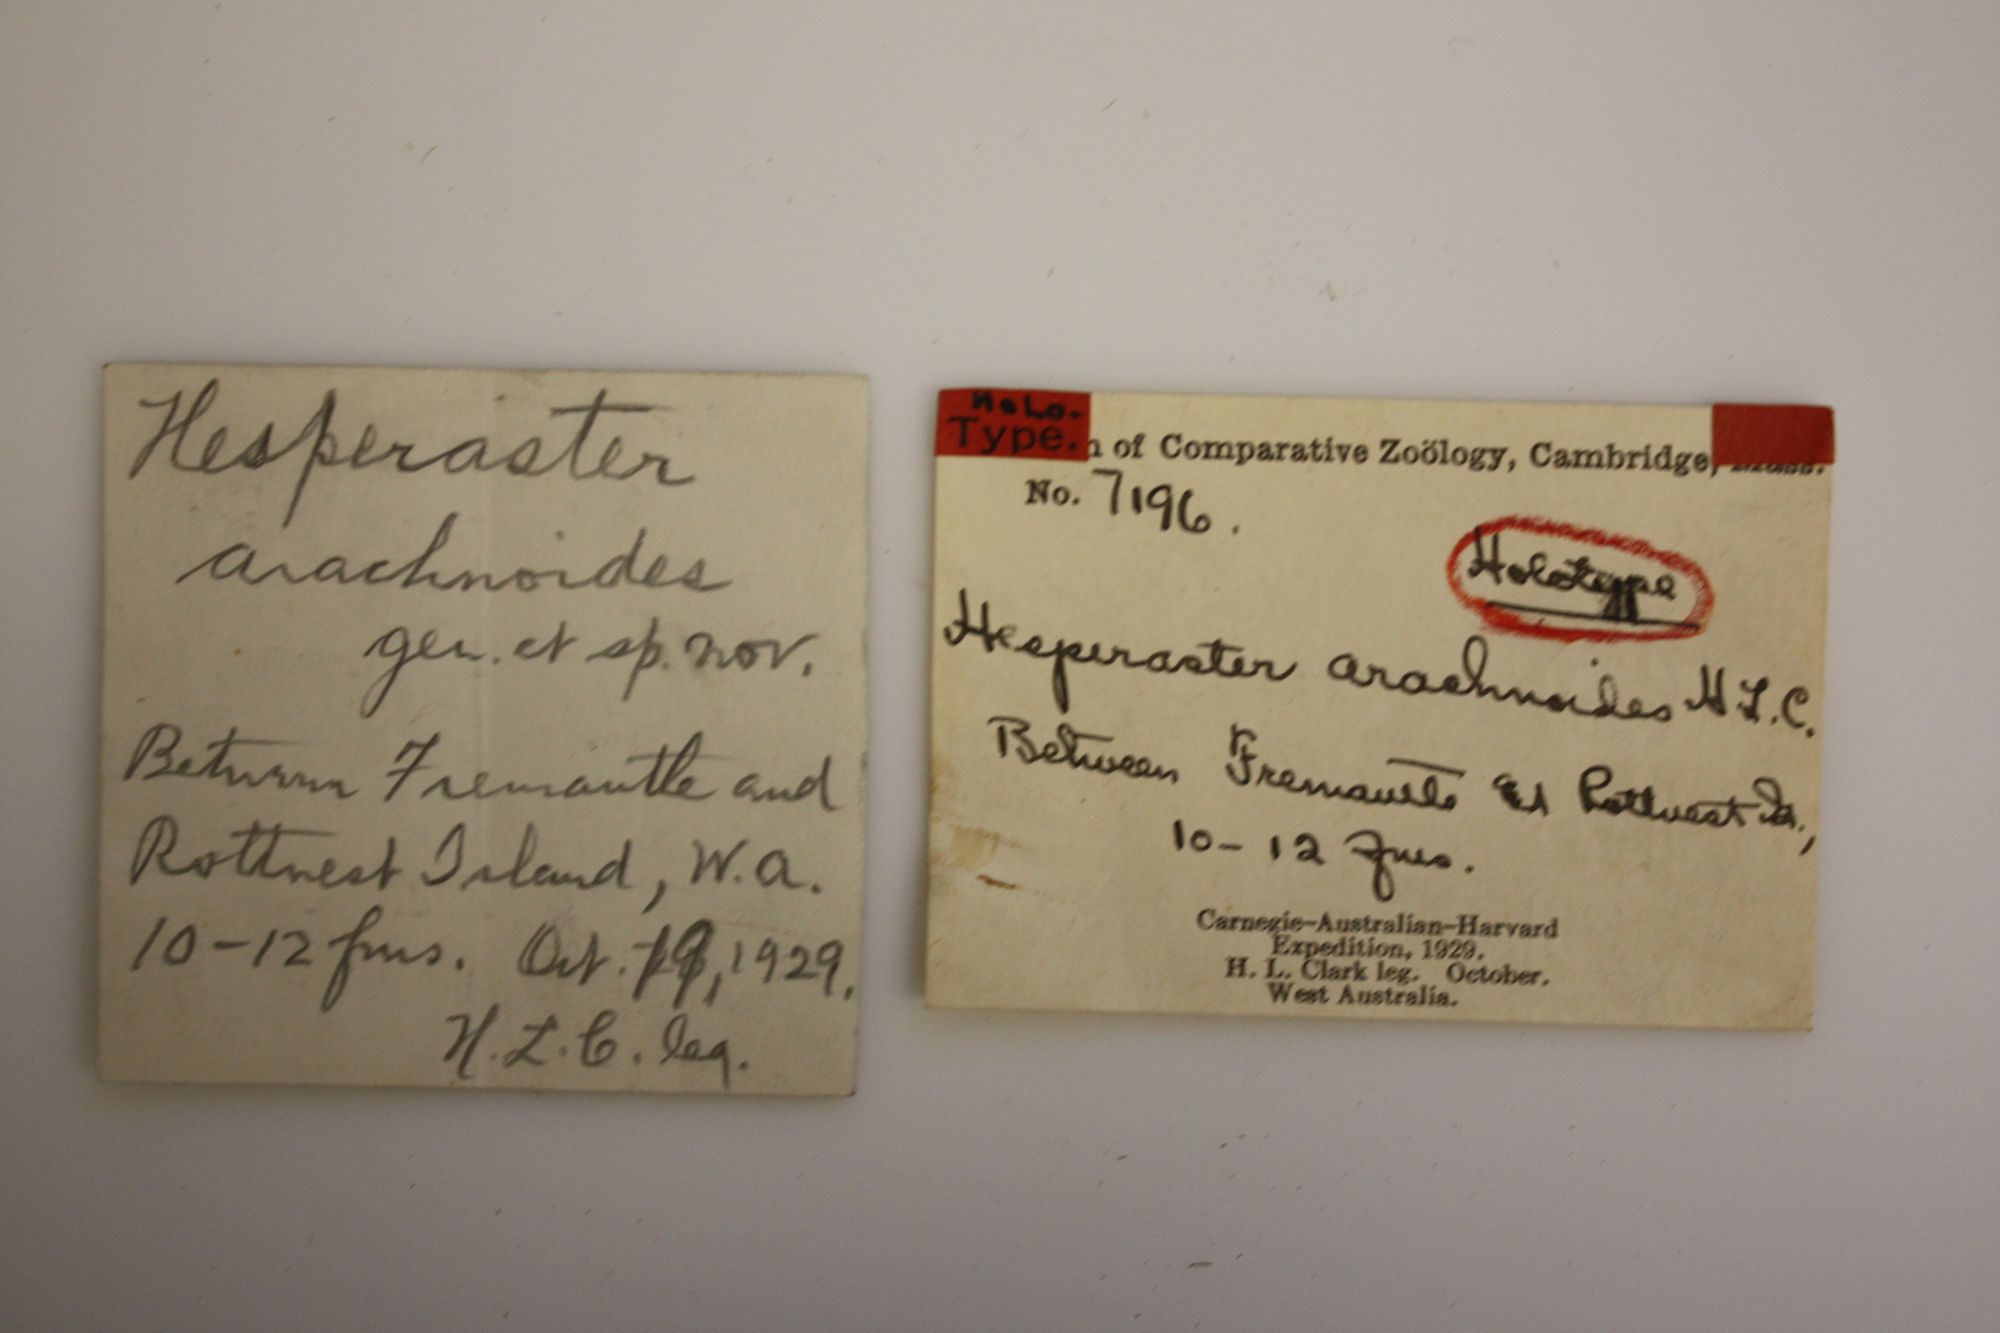 Hesperaster
arachnoides
gen. et sp. nov.
Between Fremantle and
Rottnest Island, W.A.
10-12 fms. Oct. 19, 1929.
H.L.C. leg.
Holo-
Type.
of Comparative Zoölogy, Cambridge, Mass.
No. 7196.
Holotype
Hesperaster arachnoides H.L.C.
Between Fremantle Rottnest Is.,
10-12 fms.
Carnegie-Australian-Harvard
Expedition, 1929.
H. L. Clark leg. October.
West Australia.